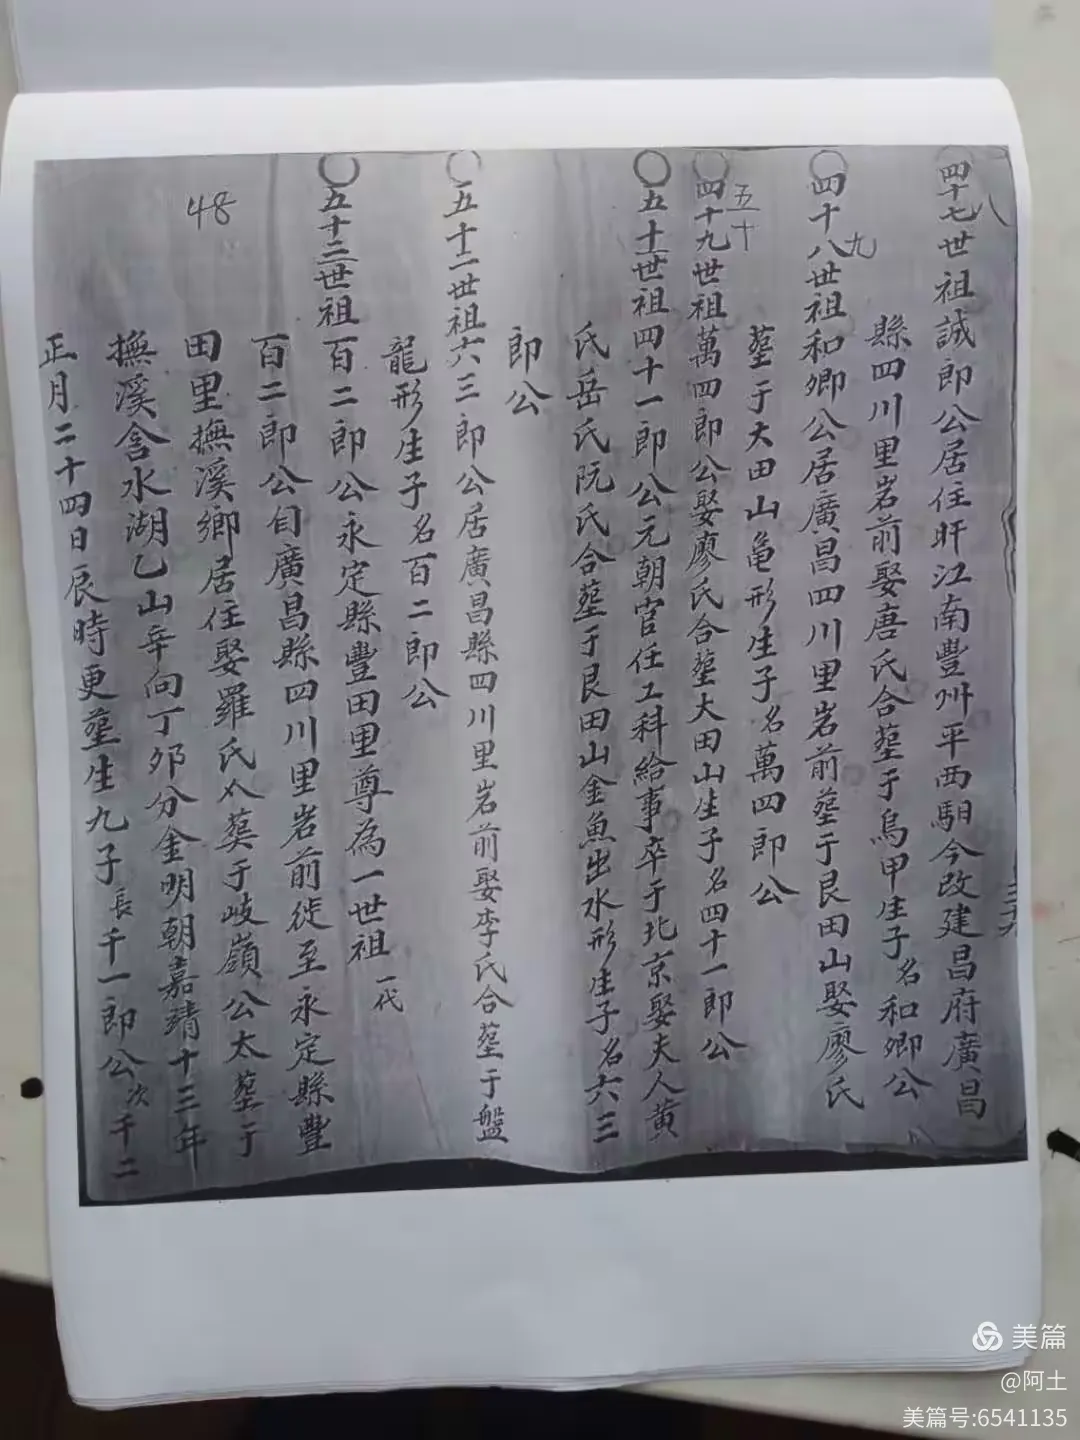 四十七世祖誠郎公居住盱江南豐州平西駬今改建昌府廣昌
八
縣四川里岩前娶唐氏合塟于烏甲生子名和卿公
四十八世祖和卿公居廣昌四川里岩前塟于艮田山娶廖氏
九
塟于大田山龜形生子名萬四郎公
五十
四十九世祖萬四郎公娶廖氏合塟大田山生子名四十一郎公
五十世祖四十一郎公元朝官任工科給事卒于北京娶夫人黃
氏岳氏阮氏合塟于艮田山金魚出水形生子名六三
郎公
五十一世祖六三郎公居廣昌縣四川里岩前娶李氏合塟于盤
龍形生子名百二郎公
五十二世祖百二郎公永定縣豐田里尊為一世祖 一代
百二郎公自廣昌縣四川里岩前徙至永定縣豐
田里撫溪鄉居住娶羅氏公葬于岐嶺公太塟于
撫溪含水湖乙山辛向丁卯分金明朝嘉靖十三年
正月二十四日辰時更塟生九子長千一郎公次千二
48
美篇
@阿土
美篇号:6541135